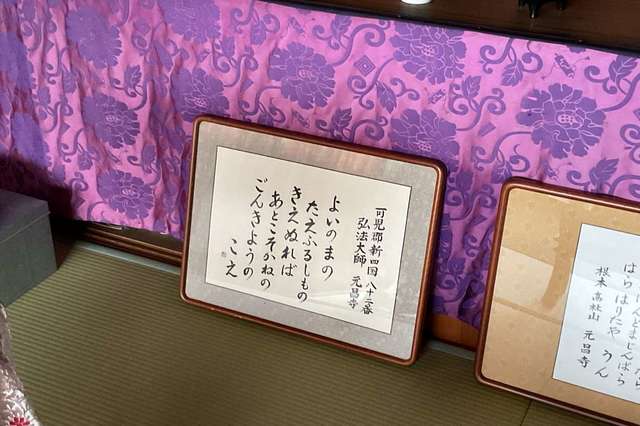 可児郡新四国 八十二番
弘法大師 元昌寺
よいのまの
たえふるしもの
きえぬれば
あとこそかねの
ごんきようの
こえ
はらはりたや うん
根本 高社山 元昌寺